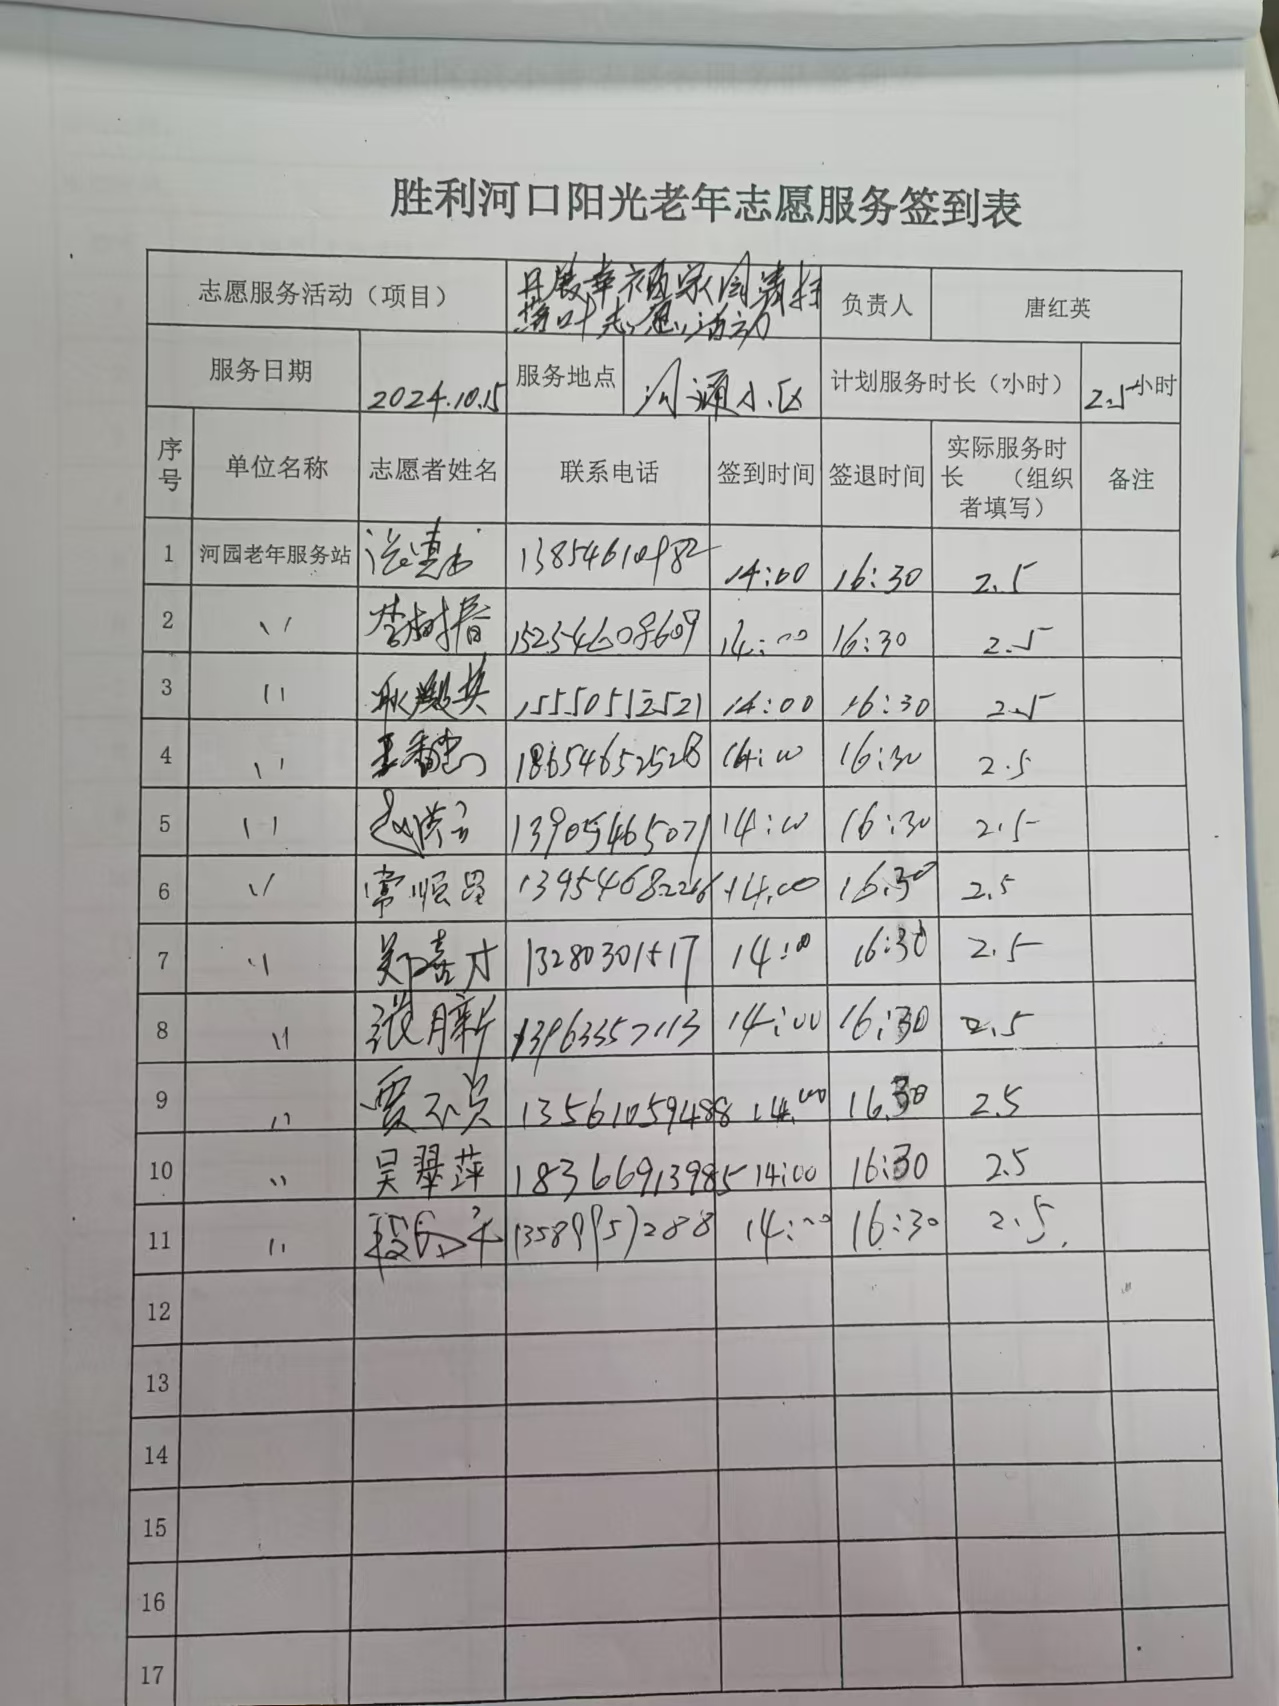 胜利河口阳光老年志愿服务签到表
志愿服务活动（项目） 开展幸福家园清扫落叶志愿活动 负责人 唐红英
服务日期 2024.10.15 服务地点 河涌小区 计划服务时长（小时） 2.5小时
序号 单位名称 志愿者姓名 联系电话 签到时间 签退时间 实际服务时长 （组织者填写） 备注
1 河园老年服务站 13854610982 14:00 16:30 2.5
2 〃 李树春 15254608609 14:00 16:30 2.5
3 〃 15550512521 14:00 16:30 2.5
4 〃 18654652528 14:00 16:30 2.5
5 〃 13905465071 14:00 16:30 2.5
6 〃 常顺昌 13954682266 14:00 16:30 2.5
7 〃 郑喜才 13280301517 14:00 16:30 2.5
8 〃 张月新 13963357113 14:00 16:30 2.5
9 〃 13561059488 14:00 16:30 2.5
10 〃 吴翠萍 18366913985 14:00 16:30 2.5
11 〃 13589951288 14:00 16:30 2.5
12
13
14
15
16
17